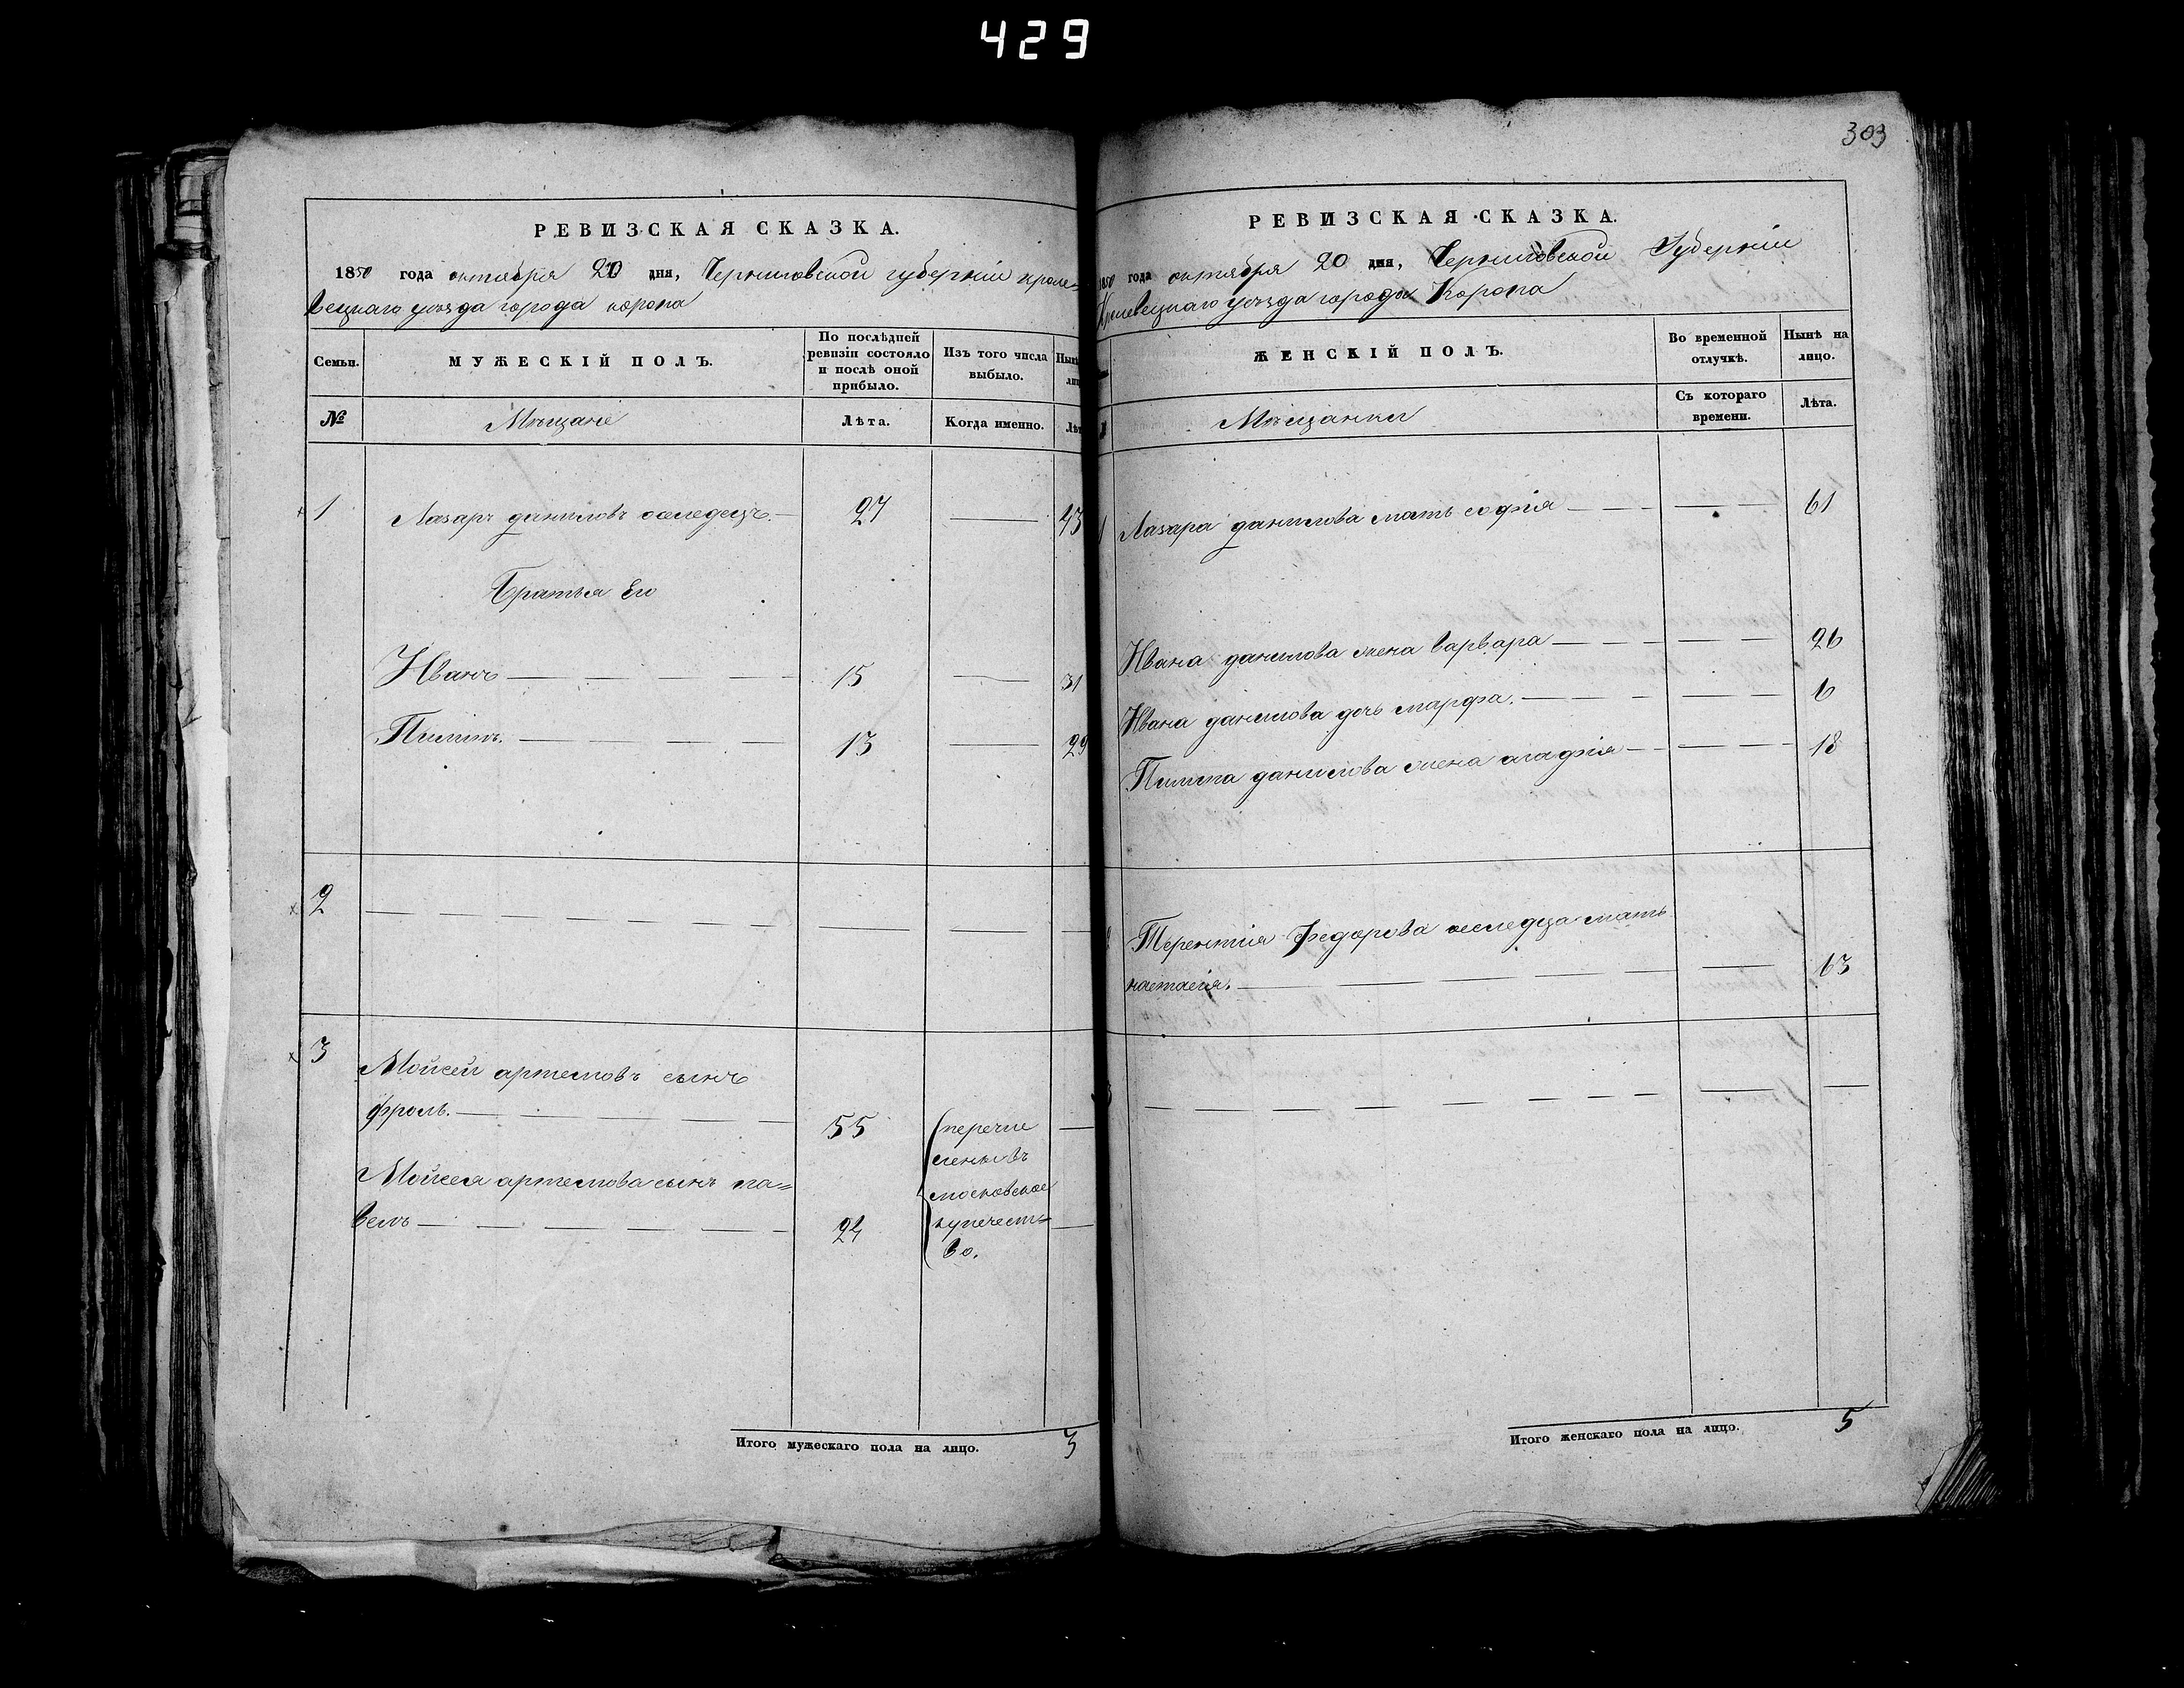 429
303
РЕВИЗСКАЯ СКАЗКА.
1850 года октября 20 дня, Черниговской губерніи кроле=
вецкаго уѣзда города коропа
Семьи.
МУЖЕСКІЙ ПОЛЪ.
По послѣдней
ревизіи состояло
и послѣ оной
прибыло.
Изъ того числа
выбыло.
№
Мѣщане
Лѣта.
Когда именно.
1 Лазарь даниловъ оселедецъ. 27 43
Братья Его
Иванъ 15 31
Пиминъ. 13 29
2
3 Мойсей артемовъ сынъ
фролъ. 55 (перечи
слены въ
московское
Мойсея артемова сынъ па=
велъ 24 купечест=
во.
Итого мужескаго пола на лицо. 3
РЕВИЗСКАЯ СКАЗКА.
1850 года октября 20 дня, Черниговской Губерніи
Кролевецкаго уѣзда города Коропа
ЖЕНСКІЙ ПОЛЪ.
Во временной
отлучкѣ.
Нынѣ на
лицо.
Мѣщанки
Съ котораго
времени.
Лѣта.
1 Лазаря данилова мать софія 61
Ивана данилова жена варвара 26
Ивана данилова дочь марфа. 6
Пимина данилова жена агафія 18
Терентія Федорова оселедца мать
настасія. 63
Итого женскаго пола на лицо. 5